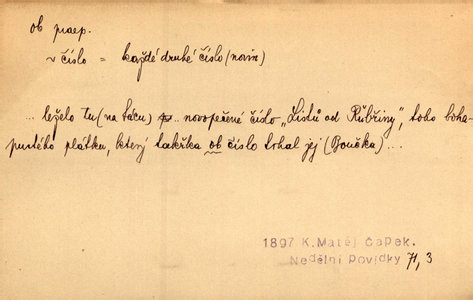 ob praep.
~ číslo = každé druhé číslo (novin)
... leželo tu (na tácu) novopečené číslo „Listů od Růbřiny", toho boha-
pustého plátku, který takřka ob číslo tohal jej (Boučka) ...
1897 K. Matěj Čapek.
Nedělní povídky 71, 3